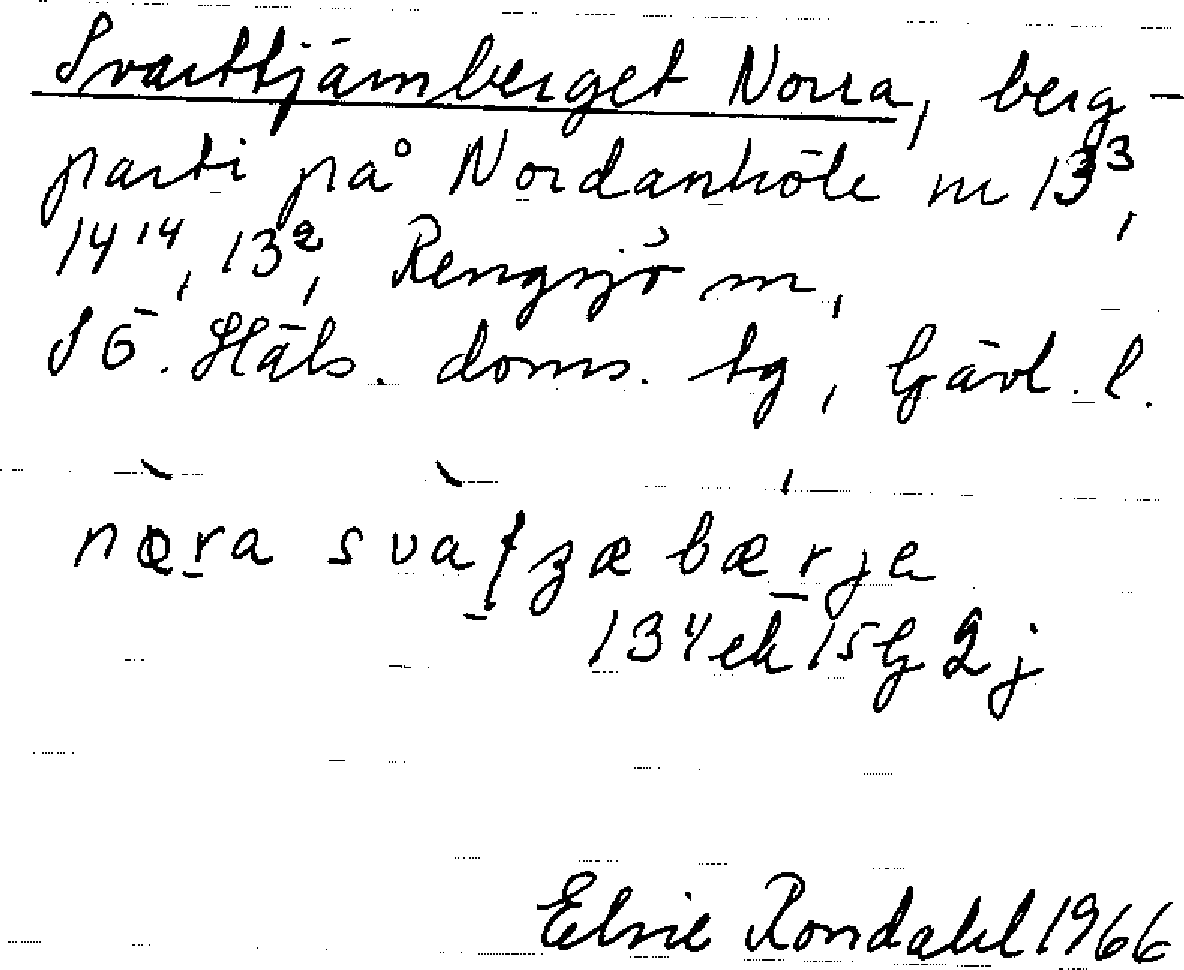 Svarttjärnberget Norra, berg-
parti på Nordanhöle nr 13³,
14¹⁴, 13², Rengsjö sn,
SÖ. Häls. doms. tg, Gävl. l.
nœ̀ra svàꞎʒæbǽrje
13⁴ ek 15G 2j
Elsie Rondahl 1966